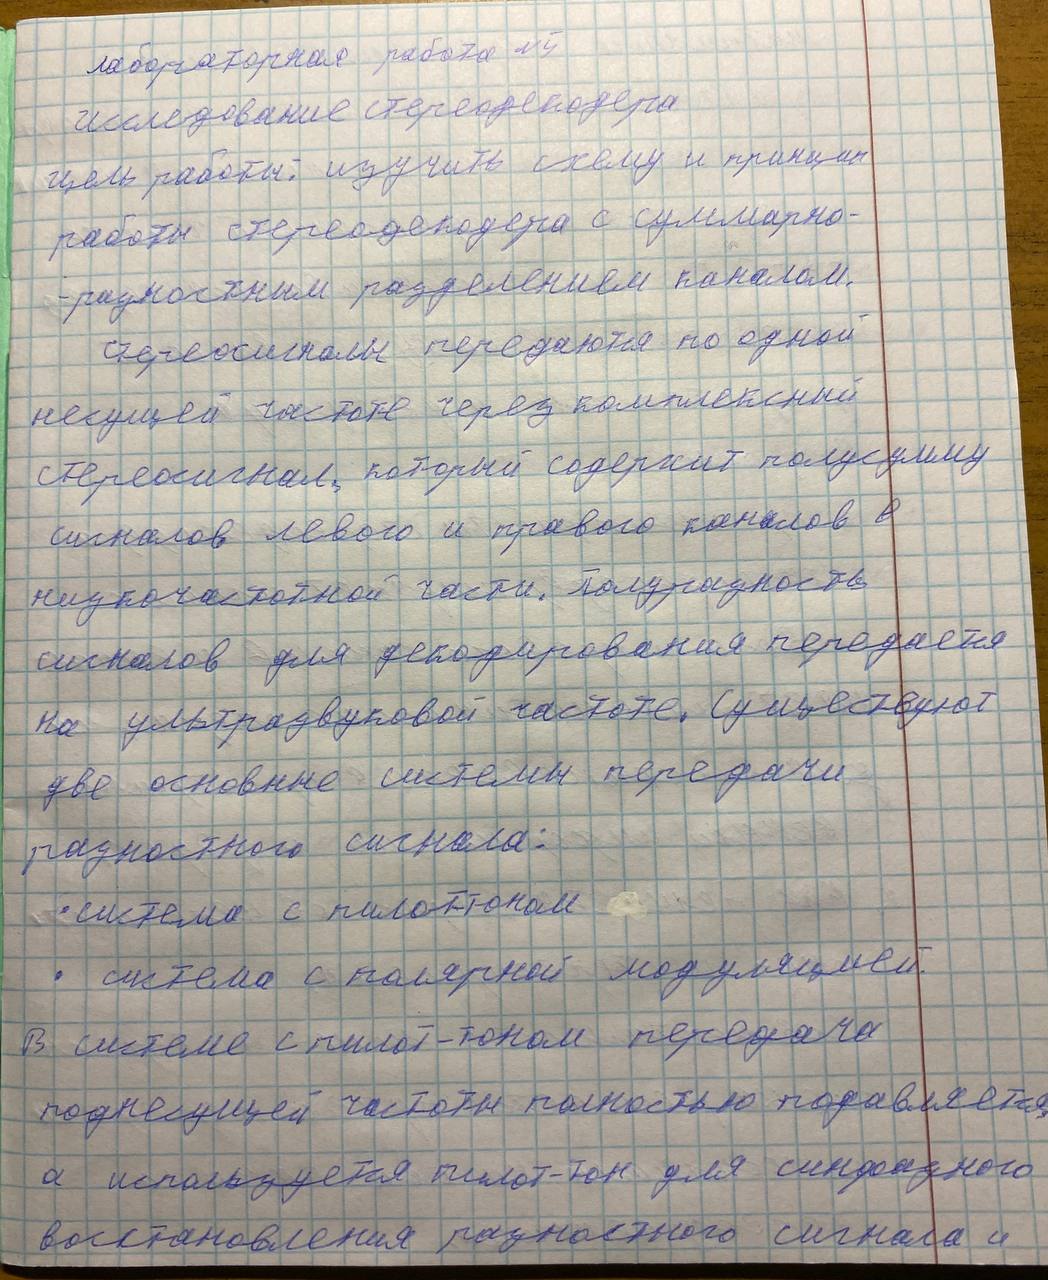 лабораторная работа №4
исследование стереодекодера
цель работы: изучить схему и принцип
работы стереодекодера с суммарно-
-разностным разделением каналом.
Стереосигналы передаются по одной
несущей частоте через комплексный
стереосигнал, который содержит полусумму
сигналов левого и правого каналов в
низкочастотной части. Полуразность
сигналов для декодирования передается
на ультразвуковой частоте. Существуют
две основные системы передачи
разностного сигнала:
• система с пилоттоном
• система с полярной модуляцией.
В системе с пилот-тоном передача
поднесущей частоты полностью подавляется,
а используется пилот-тон для синфазного
восстановления разностного сигнала и